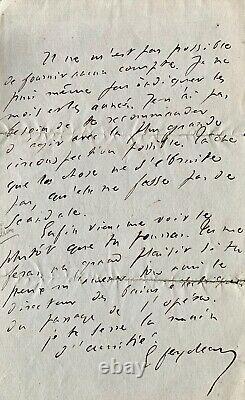 Il ne m'est pas possible
de fournir aucun compte. Je ne
puis même pas indiquer les
mois et les années. Je n'ai pas
besoin de te recommander
d'agir avec la plus grande
circonspection possible. Tâche
que la chose ne s'ébruite
pas, qu'elle ne fasse pas de
scandale.
Enfin viens me voir le
plutôt que tu pourras. Tu me
feras un grand plaisir si tu
ami le
directeur des bains
du passage de l'opéra.
je te serre la main
d'amitié
E Feydeau
© ebay.com